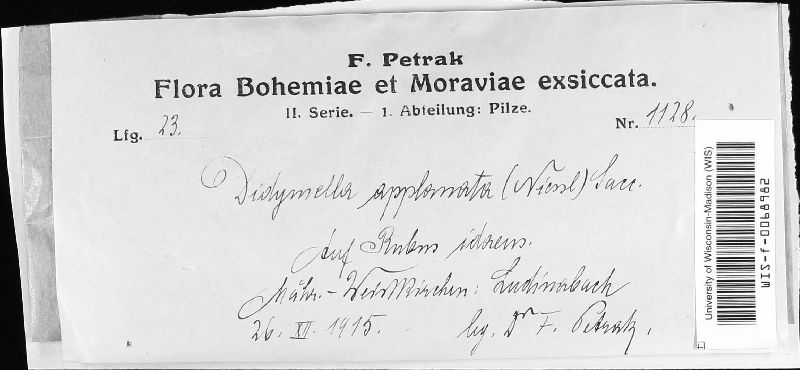 F. Petrak
Flora Bohemiae et Moraviae exsiccata.
II. Serie. — 1. Abteilung: Pilze.
Lfg. 23.
Nr. 1128.
Didymella applanata (Niessl) Sacc.
Auf Rubus idaeus.
Mähr.-Weisskirchen: Ludinabach
26. XI. 1915. lg. Dr F. Petrak.
University of Wisconsin-Madison (WIS)
WIS-f-0068982